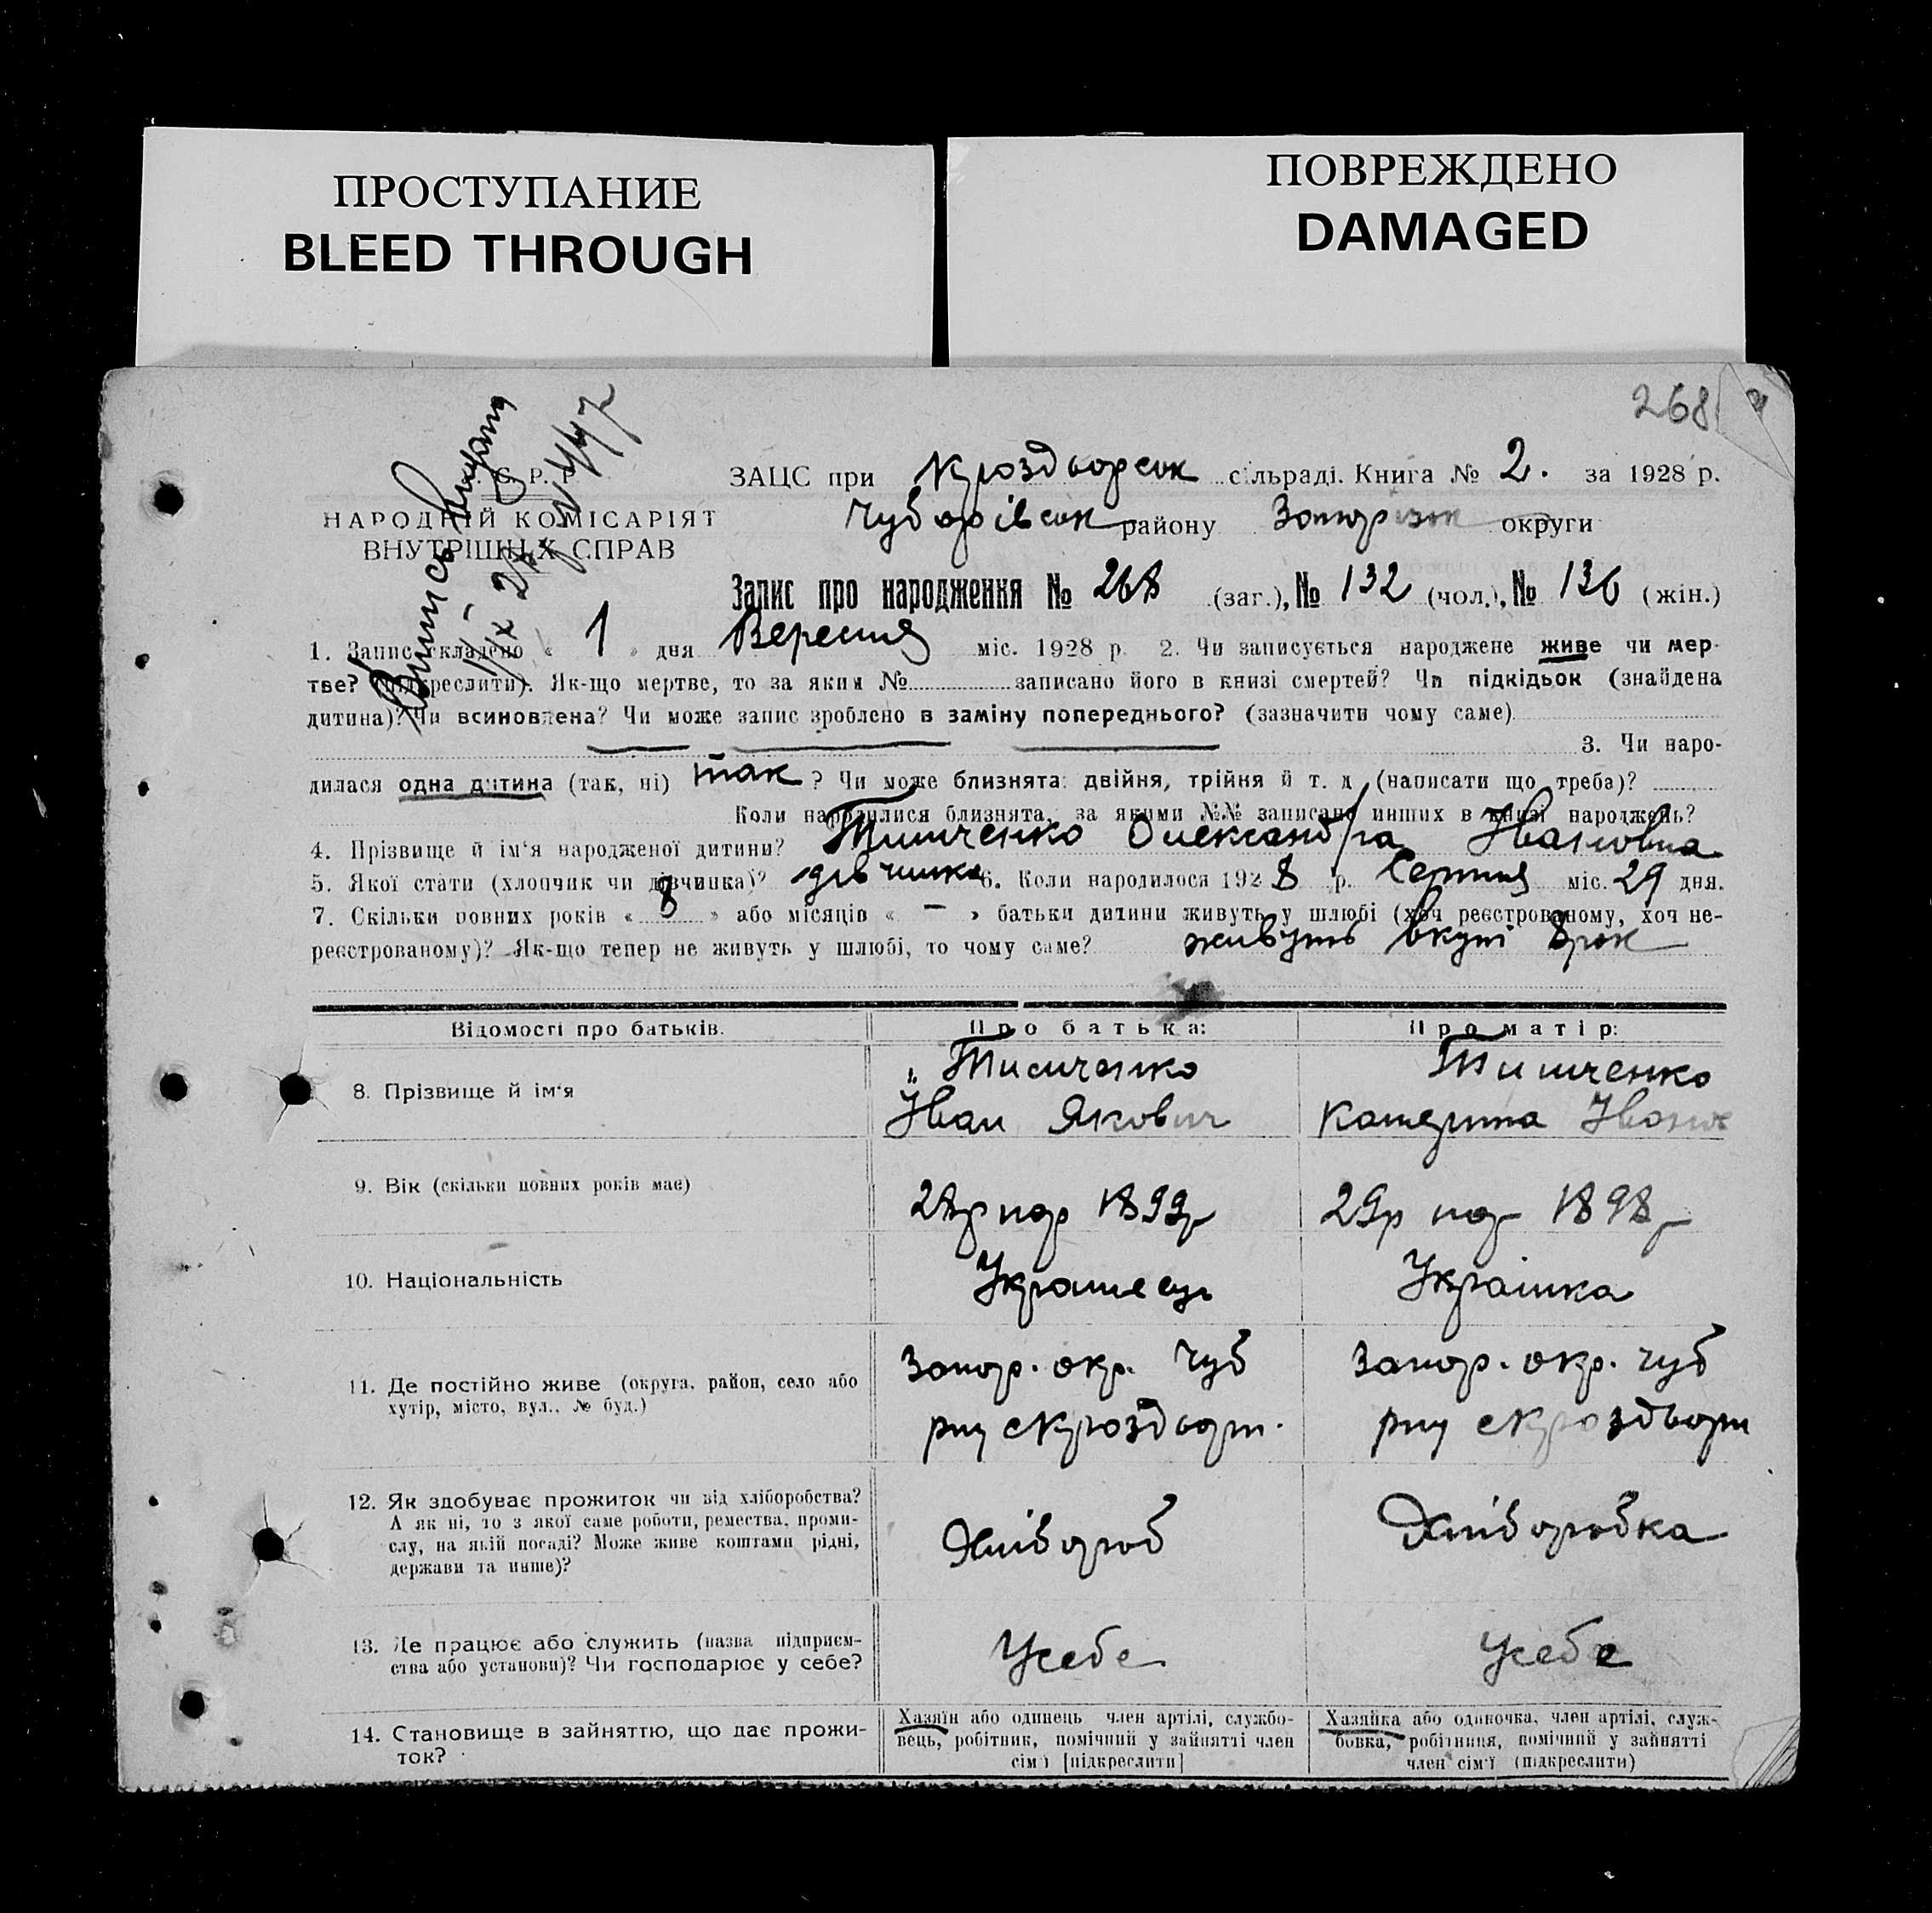 ПРОСТУПАНИЕ
BLEED THROUGH
ПОВРЕЖДЕНО
DAMAGED
268
С. Р. Р.
НАРОДНІЙ КОМІСАРІЯТ
ВНУТРІШНІХ СПРАВ
ЗАЦС при Кроздворськ сільраді. Книга № 2. за 1928 р.
Чубарівськ району Запоріз округи
Запис про народження № 268 (заг.), № 132 (чол.), № 136 (жін.)
1. Запис складено « 1 » дня Вересня міс. 1928 р. 2. Чи записується народжене живе чи мер-
тве? (підкреслити). Як-що мертве, то за яким № записано його в книзі смертей? Чи підкідьок (знайдена
дитина)? Чи всиновлена? Чи може запис зроблено в заміну попереднього? (зазначити чому саме)
3. Чи наро-
дилася одна дитина (так, ні) так ? Чи може близнята: двійня, трійня й т. д. (написати що треба)?
Коли народилися близнята, за якими №№ записано инших в книзі народжень?
4. Прізвище й ім'я народженої дитини? Тимченко Олександра Івановна
5. Якої стати (хлопчик чи дівчинка)? дівчинка 6. Коли народилося 1928 р. Серпня міс. 29 дня.
7. Скільки повних років « 8 » або місяців « — » батьки дитини живуть у шлюбі (хоч реєстрованому, хоч не-
реєстрованому)? Як-що тепер не живуть у шлюбі, то чому саме? живуть вкупі 8 рок
Відомості про батьків. Про батька: Про матір:
8. Прізвище й ім'я
Тимченко
Іван Якович
Тимченко
Катерина Іванов
9. Вік (скільки повних років має)
28р нар 1899р
29р нар 1898р
10. Національність
Українець
Українка
11. Де постійно живе (округа, район, село або
хутір, місто, вул., № буд.)
Запор. окр. Чуб
рну с Кроздворн.
Запор. окр. Чуб
рну с Кроздворн
12. Як здобуває прожиток чи від хліборобства?
А як ні, то з якої саме роботи, ремества, проми-
слу, на якій посаді? Може живе коштами рідні,
держави та инше)?
Хлібороб
Хліборобка
13. Де працює або служить (назва підприєм-
ства або установи)? Чи господарює у себе?
Усебе
Усебе
14. Становище в зайняттю, що дає прожи-
ток?
Хазяїн або одинець член артілі, службо-
вець, робітник, помічний у зайнятті член
сім'ї [підкреслити]
Хазяйка або одиночка, член артілі, служ-
бовка, робітниця, помічний у зайнятті
член сім'ї (підкреслити)